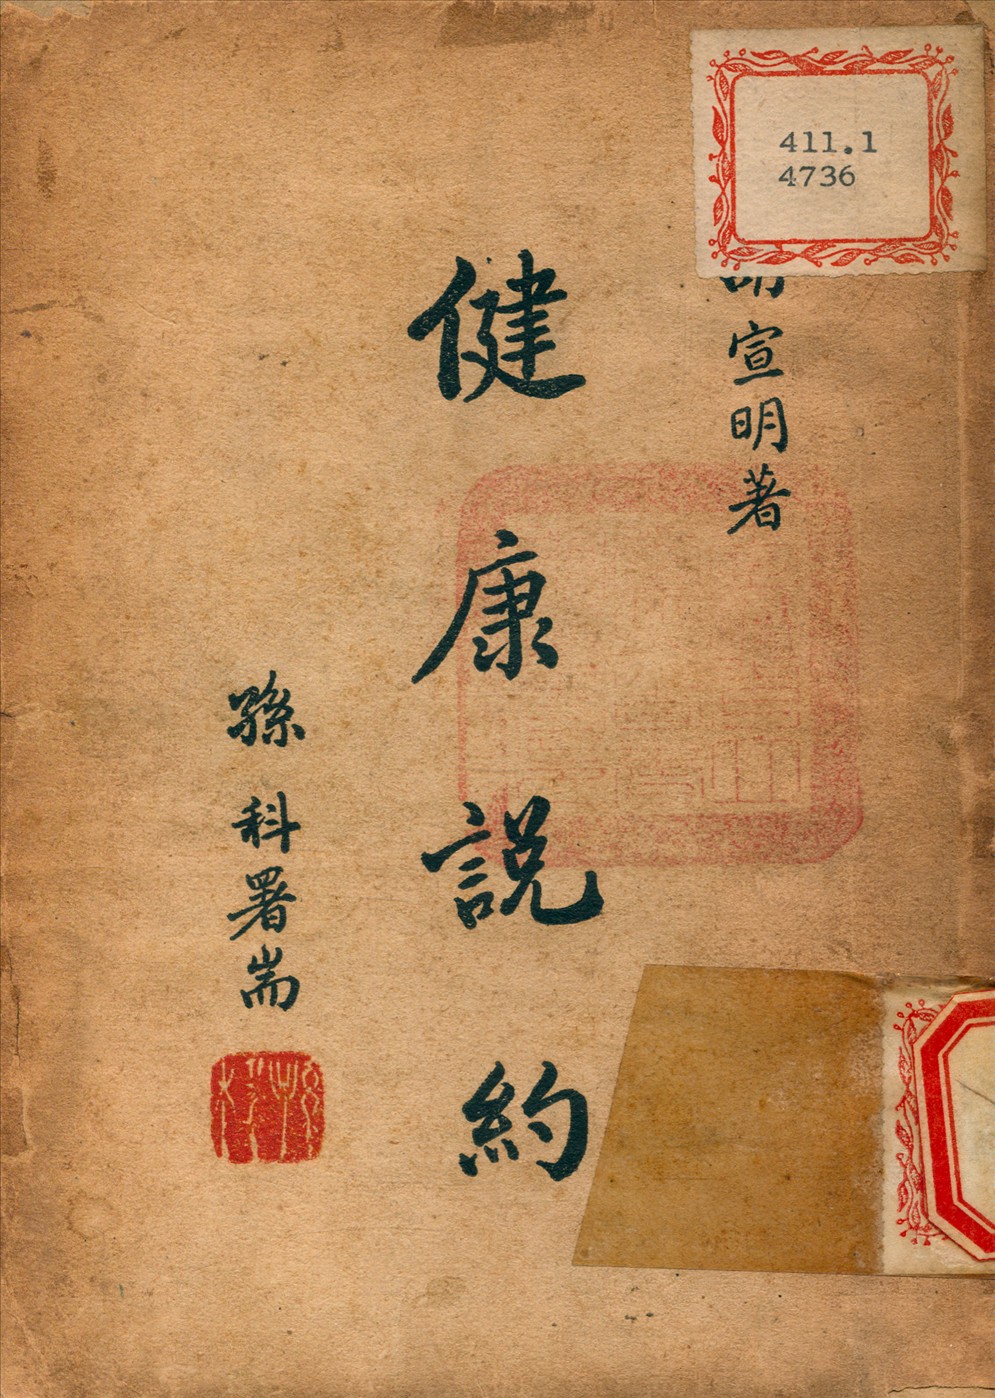 411.1
4736
宣明著
健康説約
孫科署耑